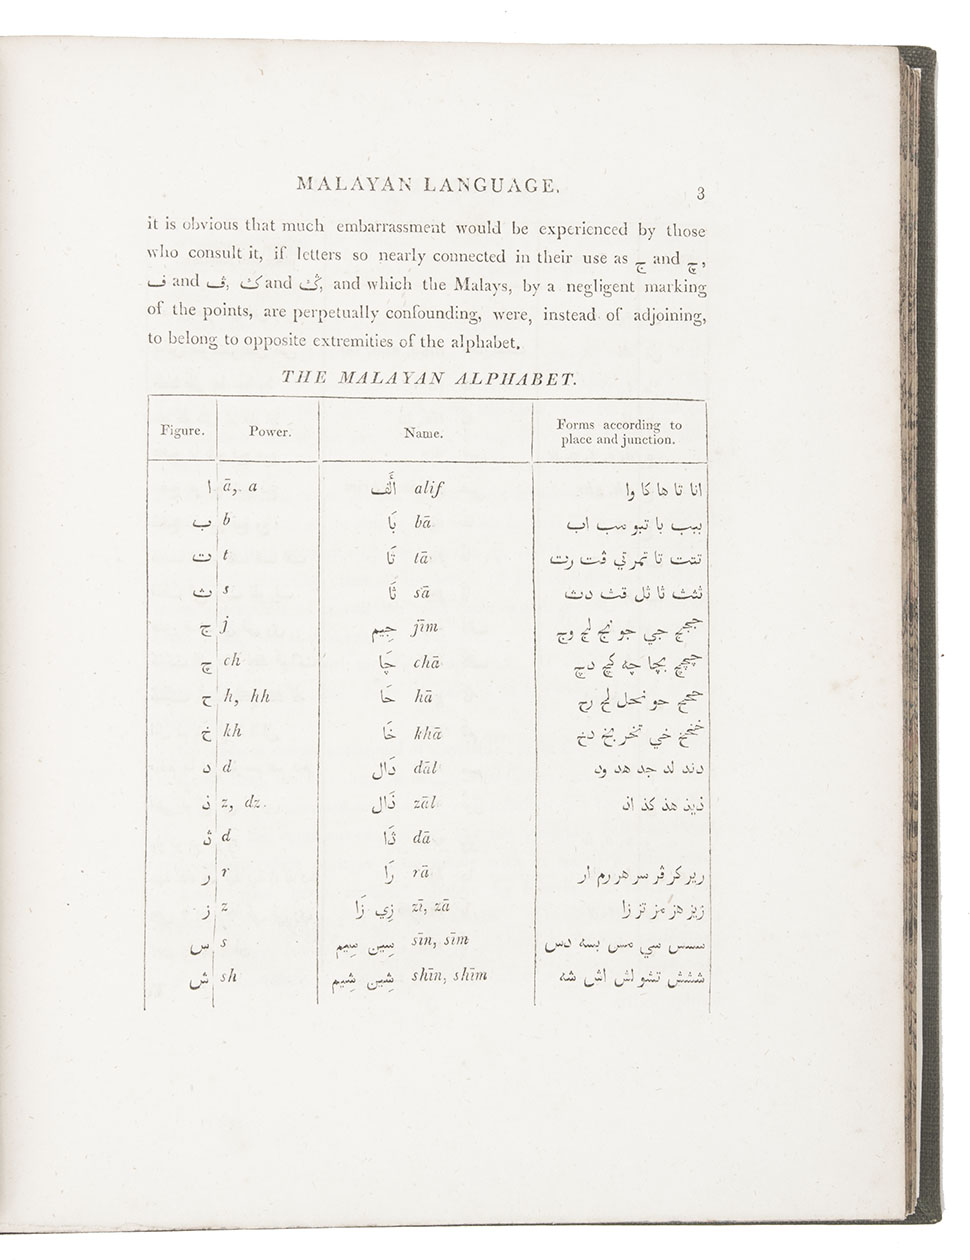 MALAYAN LANGUAGE.
3
it is obvious that much embarrassment would be experienced by those
who consult it, if letters so nearly connected in their use as ج and چ,
ف and ڤ, ک and ݢ, and which the Malays, by a negligent marking
of the points, are perpetually confounding, were, instead of adjoining,
to belong to opposite extremities of the alphabet.
THE MALAYAN ALPHABET.
Figure. Power. Name. Forms according to
place and junction.
ا ā, a اَلِف alif انا تا ها كا وا
ب b بَا bā ببب با تبو سب اب
ت t تَا tā تتت تا تمرتي ڤت رت
ث s ثَا sā ثثث ثا ثل قث دث
ج j جِيم jīm ججج جي جو نج لج وج
چ ch چَا chā چچچ بچا چه کچ دچ
ح h, hh حَا hā ححح حو نحل لح رح
خ kh خَا khā خخخ خي تخر بخ دخ
د d دَال dāl دند لد جد هد ود
ذ z, dz ذَال zāl ذيذ هذ كذ اذ
ڎ d ڎَا dā
ر r رَا rā رير كر ڤر سر هر رم ار
ز z زِي زَا zī, zā زيز هز مز تز زا
س s سِين سِيم sīn, sīm سسس سي مس بسه دس
ش sh شِين شِيم shīn, shīm ششش تشو لش اش شه